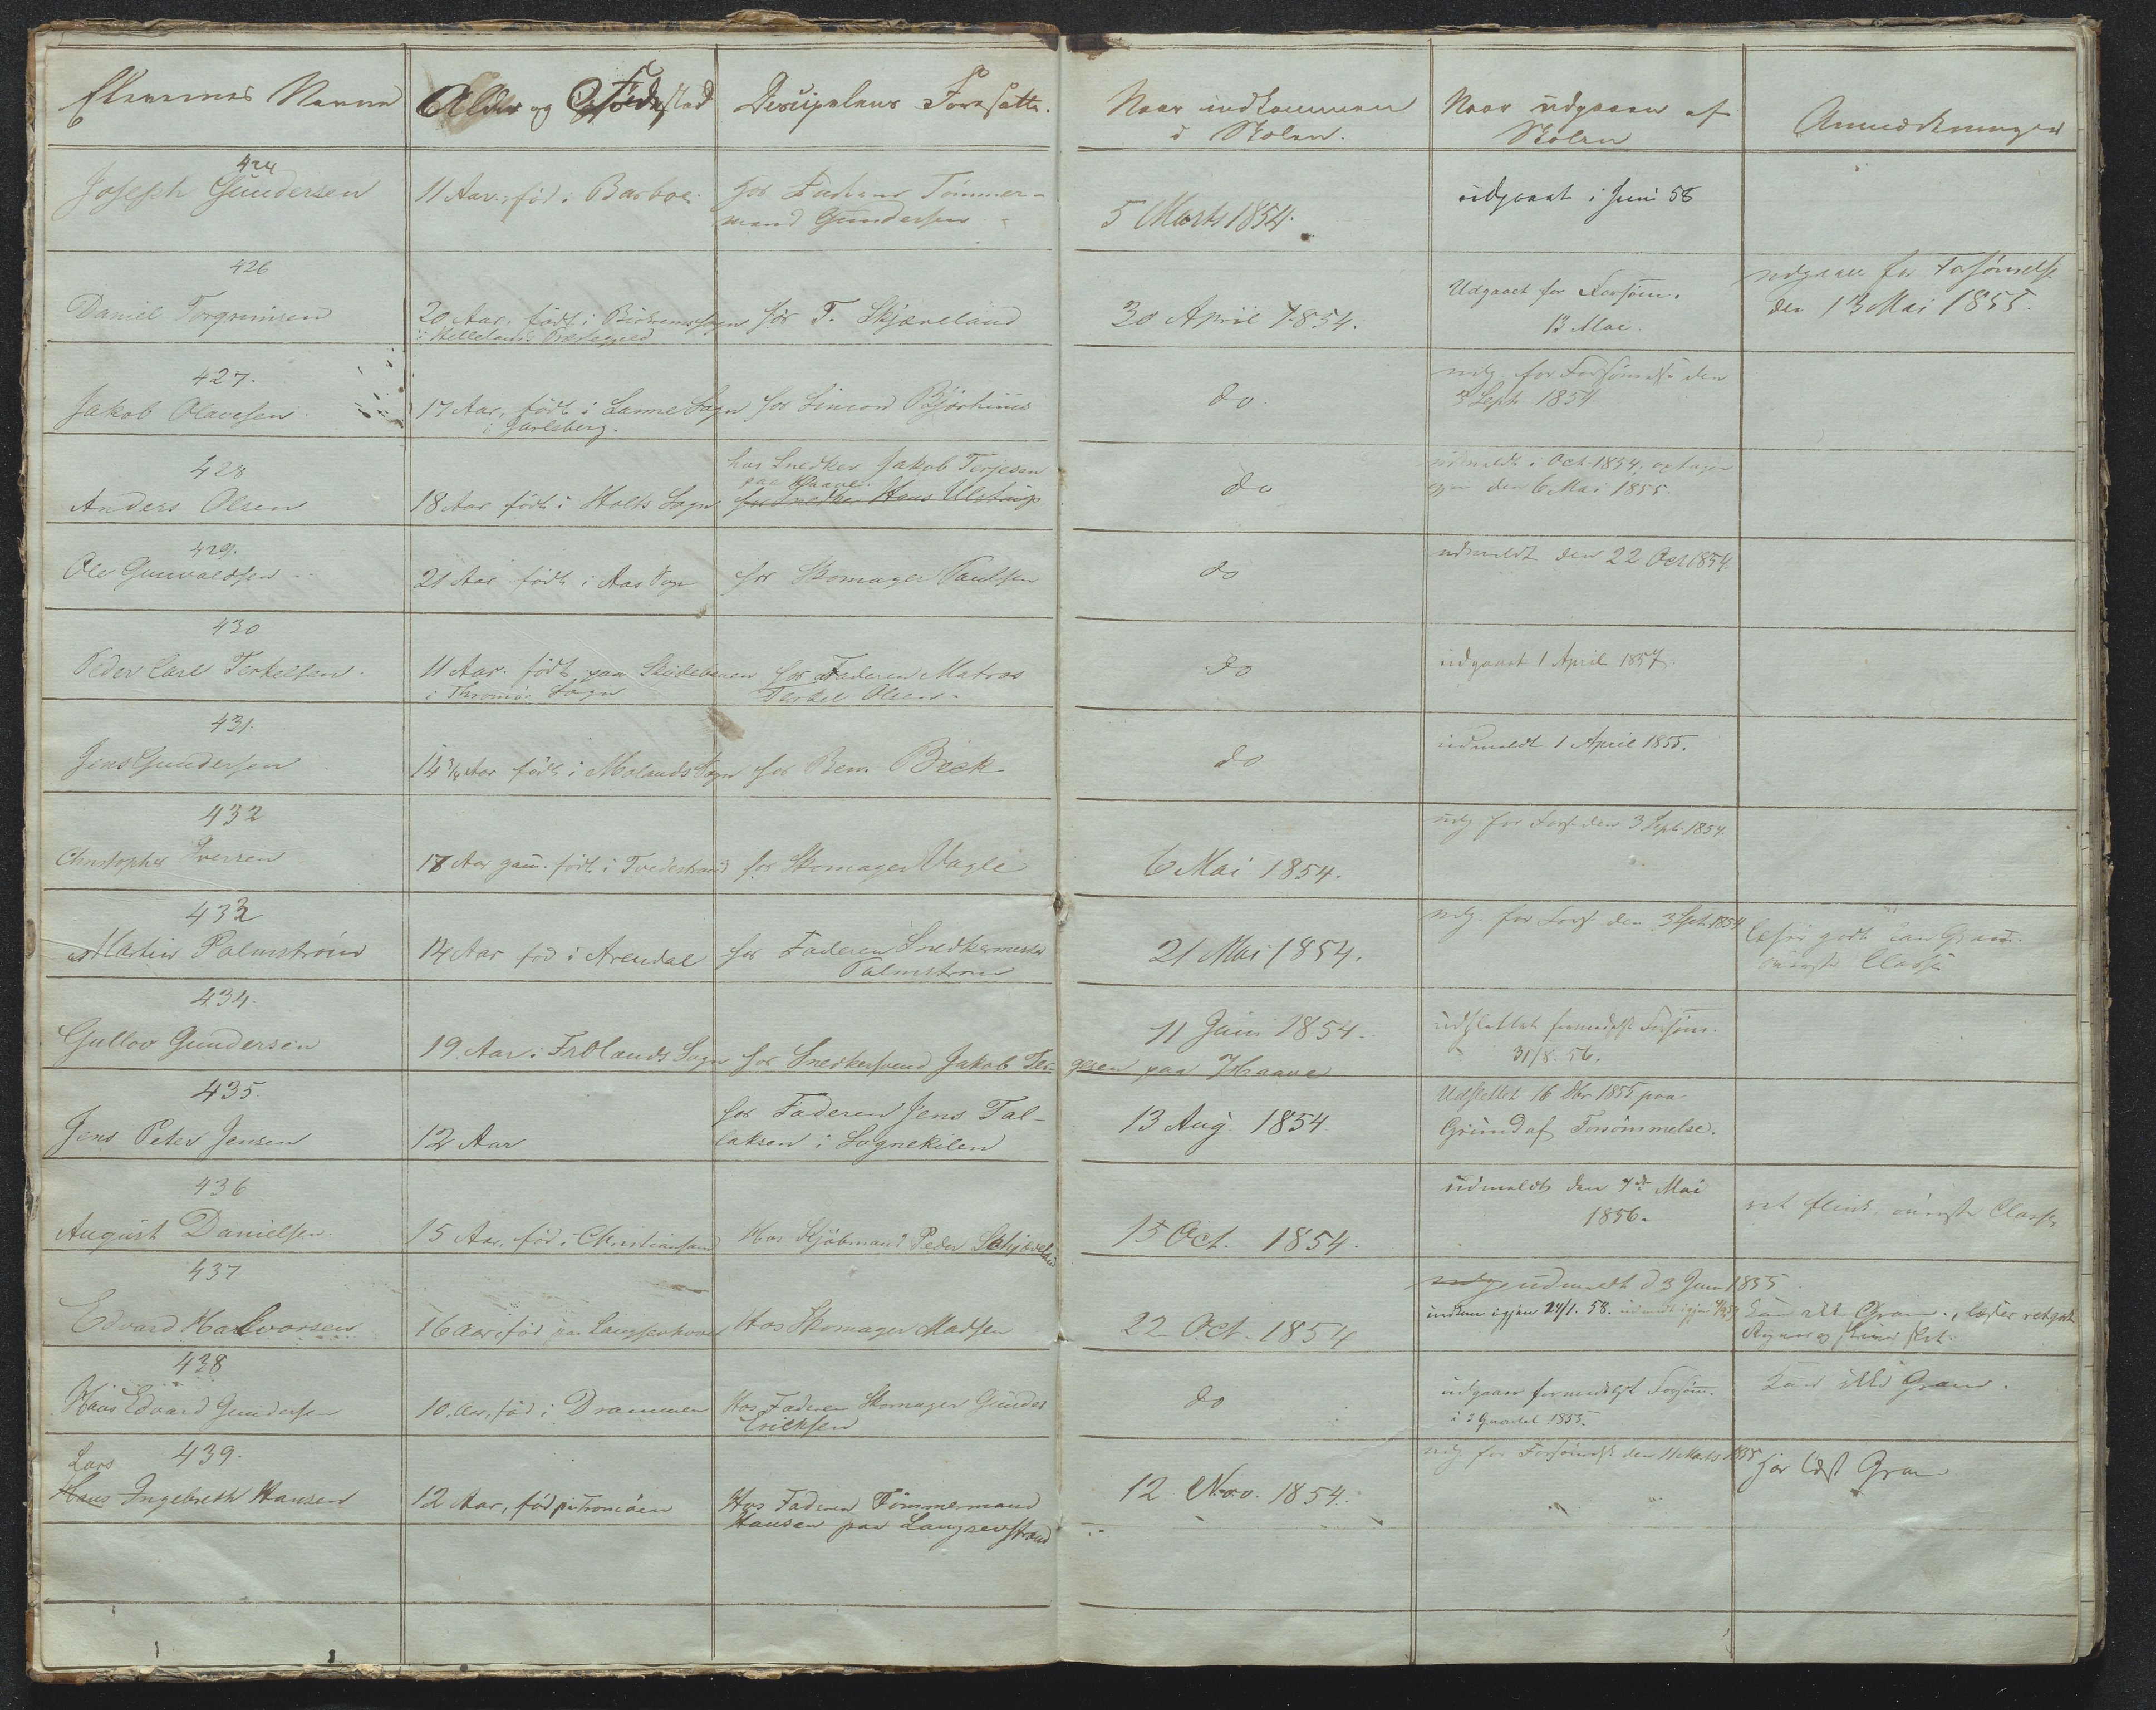 Elevernes Navne
Alder og Fødested
Discipelens Foresatte.
Naar indkommen
i Skolen.
Naar udgaaen af
Skolen
Anmærkninger
424
Joseph Gundersen
11 Aar. fød i Barboe.
hos Faderen Tömmer-
mand Gundersen
5 Marts 1854.
udgaaet i Juni 58
426
Daniel Torgrimsen
20 Aar, født i Birkrems sogn
i Hellelands Præstegjeld
hos T. Skjæveland
30 April 1854.
Udgaaet for Forsöm.
13 Mai.
udgaaet for Forsömmelse
den 13 Mai 1855.
427.
Jakob Olavesen
17 Aar, født i Sanne Sogn
i Jarlsberg.
hos Simon Björhuus
do.
udg. for Forsömmelse den
3 Sept. 1854.
428
Anders Olsen
18 Aar født i Holts Sogn
hos Snedker Jakob Terjesen
paa Haave.
hos Snedker Hans Ulstrup
do
udmeldt i Oct. 1854. optagen
igjen den 6 Mai 1855.
429.
Ole Gunvaldsen
21 Aar født i Aas Sogn
hos Skomager Paulsen
do
udmeldt den 22 Oct 1854.
430
Peder Carl Terkelsen.
11 Aar. født paa Skudehavnen
i Thromö Sogn
hos Faderen Matros
Terkel Olsen.
do
udgaaet 1 April 1857.
431.
Jens Gundersen
14 3/4 Aar født i Molands Sogn
hos Bem. Beck
do
udmeldt 1 April 1855.
432
Christopher Iversen
17 Aar gam. født i Tvedestrand
hos Skomager Vagle
6 Mai 1854.
udg. for Fors. den 3 Sept. 1854.
433
Martin Palmström
14 Aar fød i Arendal
hos Faderen Snedkermester
Palmstrom
21 Mai 1854.
udg. for Fors. den 3 Sept. 1854
læser godt kan Gram
överste Classe
434.
Gullov Gundersen
19 Aar i Frolands Sogn
hos Snedkersvend Jakob Ter-
gesen paa Haave
11 Juni 1854.
udslettet formedelst Forsöm.
31/8. 56.
435.
Jens Peter Jensen
12 Aar
hos Faderen Jens Tal-
laksen i Sognekilen
13 Aug 1854
Udslettet 16 Dbr 1855 paa
Grund af Forsömmelse.
436
August Danielsen.
15 Aar, fød i Christiansand
Hos Kjöbmand Peder Schjæveland
15 Oct. 1854.
udmeldt den 4de Mai
1856.
ret flink, överste Classe
437
Edvard Halvorsen
16 Aar, fød paa Langsenhovet
Hos Skomager Madsen
22 Oct. 1854
udg udmeldt d 3 Juni 1855
indkom igjen 24/1. 58. udmeldt igjen
kan ikke Gram., læser ret godt
Regner og skriver slet.
438
Hans Edvard Gundersen
10 Aar, fød i Drammen
Hos Faderen Skomager Gunder
Ericksen
do
udgaaen formedelst Forsöm.
i 3 Quartal 1855.
kan ikke Gram.
439.
Lars
Hans Ingebreth Hansen
12 Aar, fød paa Tromöen
Hos Faderen Tömmermand
Hansen paa Langsevstrand
12 Nov. 1854.
udg. for Forsömmelse den 11 Marts 1855
har læst Gram